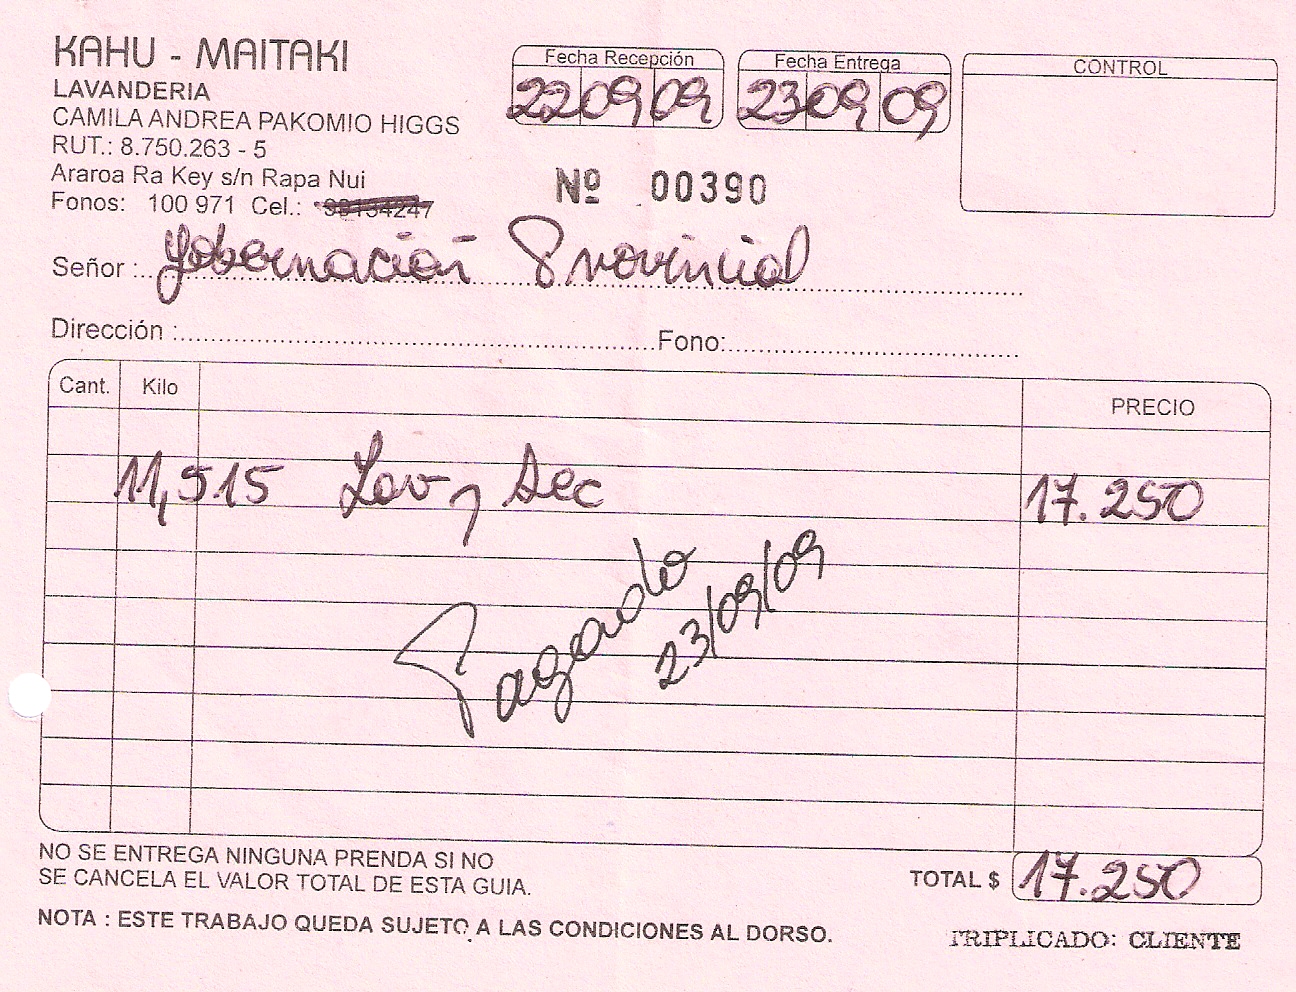 KAHU - MAITAKI
LAVANDERIA
CAMILA ANDREA PAKOMIO HIGGS
RUT.: 8.750.263 - 5
Araroa Ra Key s/n Rapa Nui
Fonos: 100 971 Cel.:
Fecha Recepción
22 09 09
Fecha Entrega
23 09 09
CONTROL
Nº 00390
Señor : Gobernación Provincial
Dirección : Fono:
Cant. Kilo PRECIO
11,515 Lav y Sec 17.250
Pagado
23/09/09
NO SE ENTREGA NINGUNA PRENDA SI NO
SE CANCELA EL VALOR TOTAL DE ESTA GUIA.
TOTAL $ 17.250
NOTA : ESTE TRABAJO QUEDA SUJETO A LAS CONDICIONES AL DORSO.
TRIPLICADO: CLIENTE